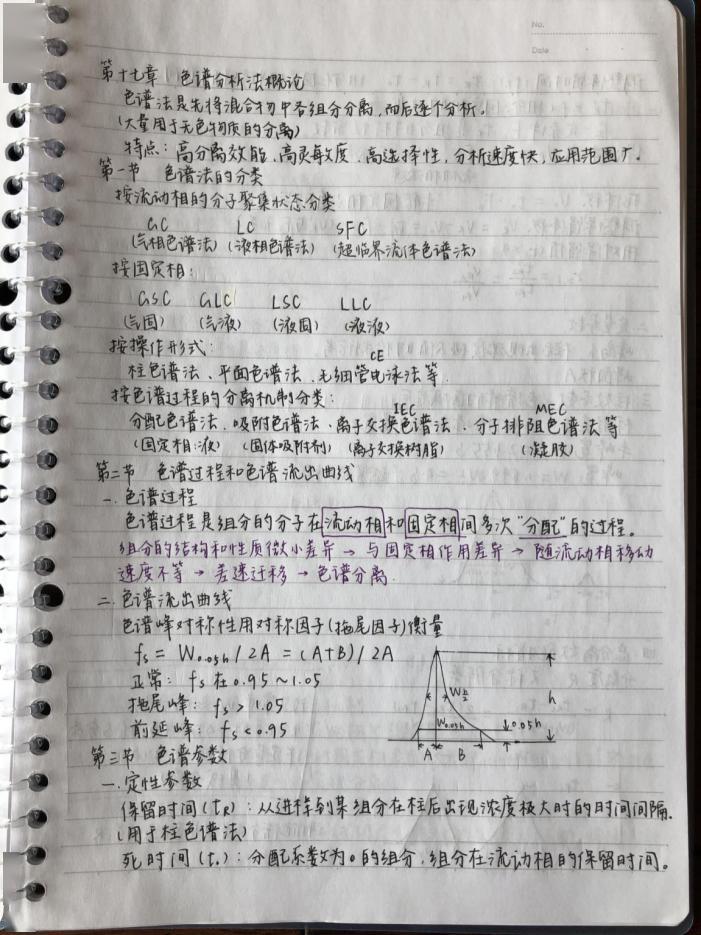 No.
Date
第十七章 色谱分析法概论
色谱法是先将混合物中各组分分离,而后逐个分析。
(大量用于无色物质的分离)
特点:高分离效能、高灵敏度、高选择性,分析速度快,应用范围广。
第一节 色谱法的分类
按流动相的分子聚集状态分类
GC LC SFC
(气相色谱法)(液相色谱法)(超临界流体色谱法)
按固定相:
GSC GLC LSC LLC
(气固) (气液) (液固) (液液)
按操作形式:
CE
柱色谱法、平面色谱法、毛细管电泳法等.
按色谱过程的分离机制分类:
IEC MEC
分配色谱法、吸附色谱法、离子交换色谱法、分子排阻色谱法等
(固定相:液) (固体吸附剂) (离子交换树脂) (凝胶)
第二节 色谱过程和色谱流出曲线
一.色谱过程
色谱过程是组分的分子在流动相和固定相间多次“分配”的过程。
组分的结构和性质微小差异→与固定相作用差异→随流动相移动
速度不等→差速迁移→色谱分离.
二.色谱流出曲线
色谱峰对称性用对称因子(拖尾因子)衡量
fs = W0.05h / 2A = (A+B) / 2A
正常: fs在0.95~1.05
拖尾峰: fs > 1.05
前延峰: fs < 0.95
W h/2
h
W0.05h
0.05h
A B
第三节 色谱参数
一.定性参数
保留时间(tR):从进样到某组分在柱后出现浓度极大时的时间间隔.
(用于柱色谱法)
死时间(t。):分配系数为0的组分,组分在流动相的保留时间。